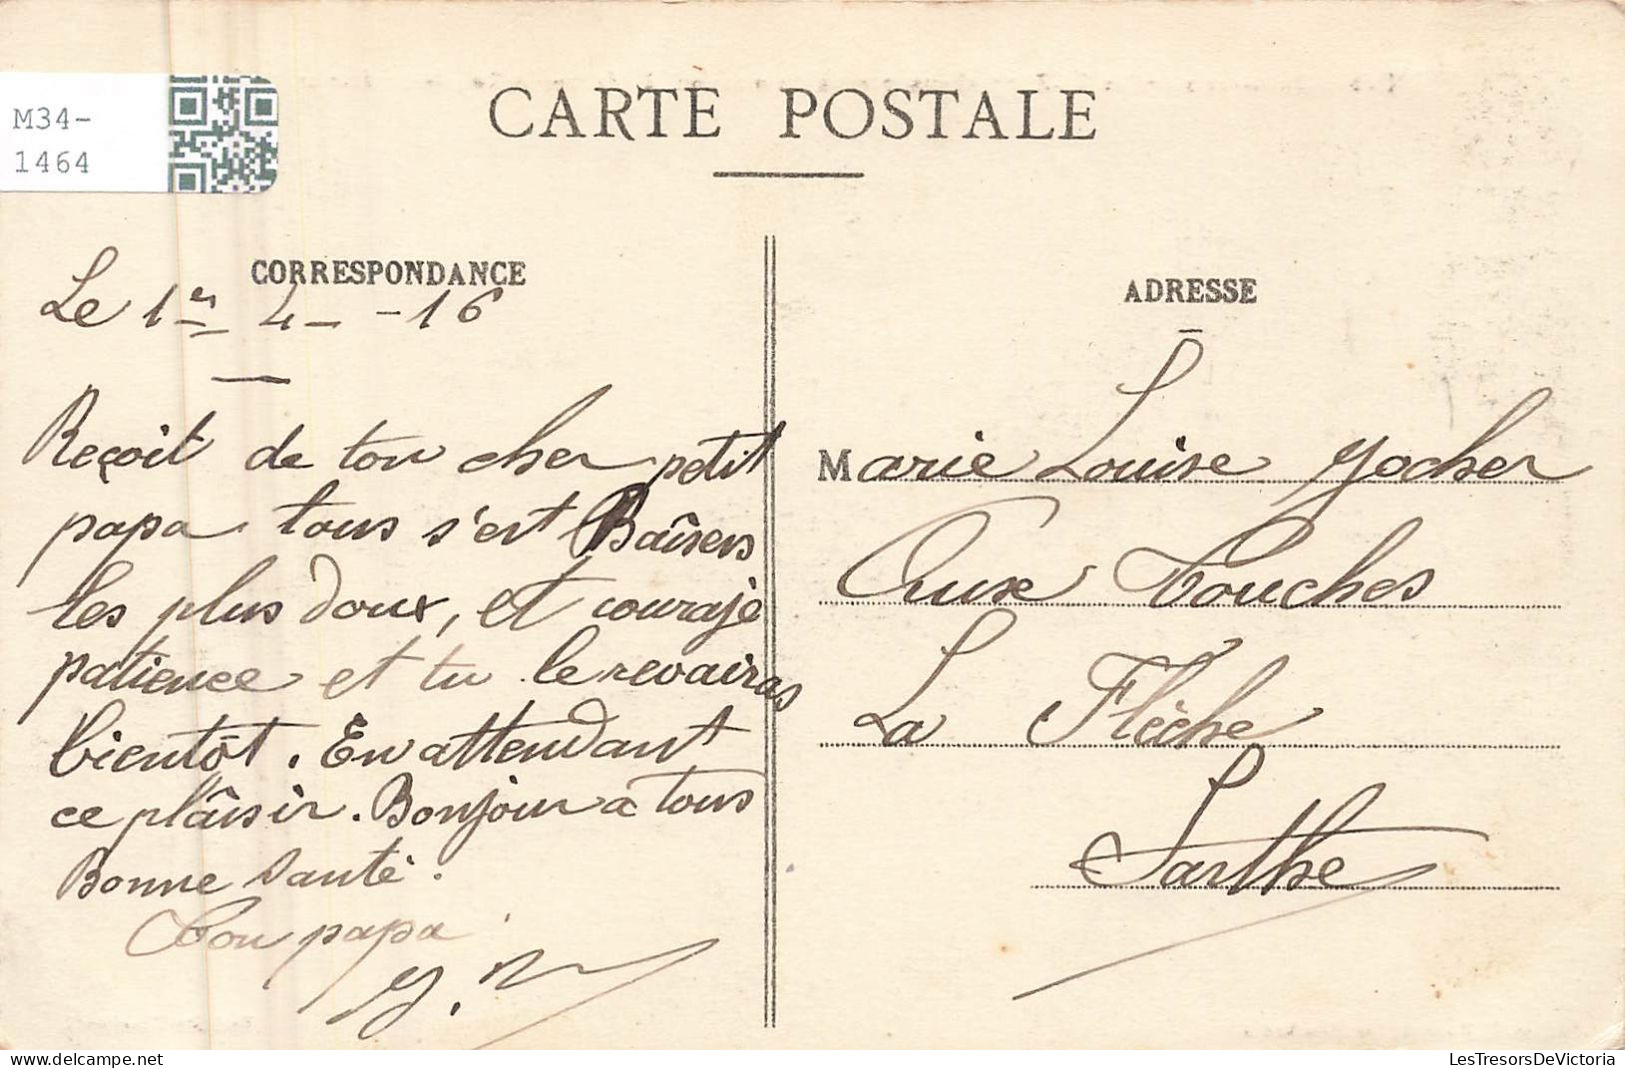 M34-
1464
CARTE POSTALE
CORRESPONDANCE
Le 1er 4 - -16
Reçoit de ton cher petit
papa tous s'est Baîsers
les plus doux, et couraje
patience et tu le revairas
bientôt. En attendant
ce plâisir. Bonjour a tous
Bonne Santé.
Ton papa
ADRESSE
Marie Louise Yocher
Aux Touches
La Flèche
Sarthe
LesTresorsDeVictoria
delcampe.net